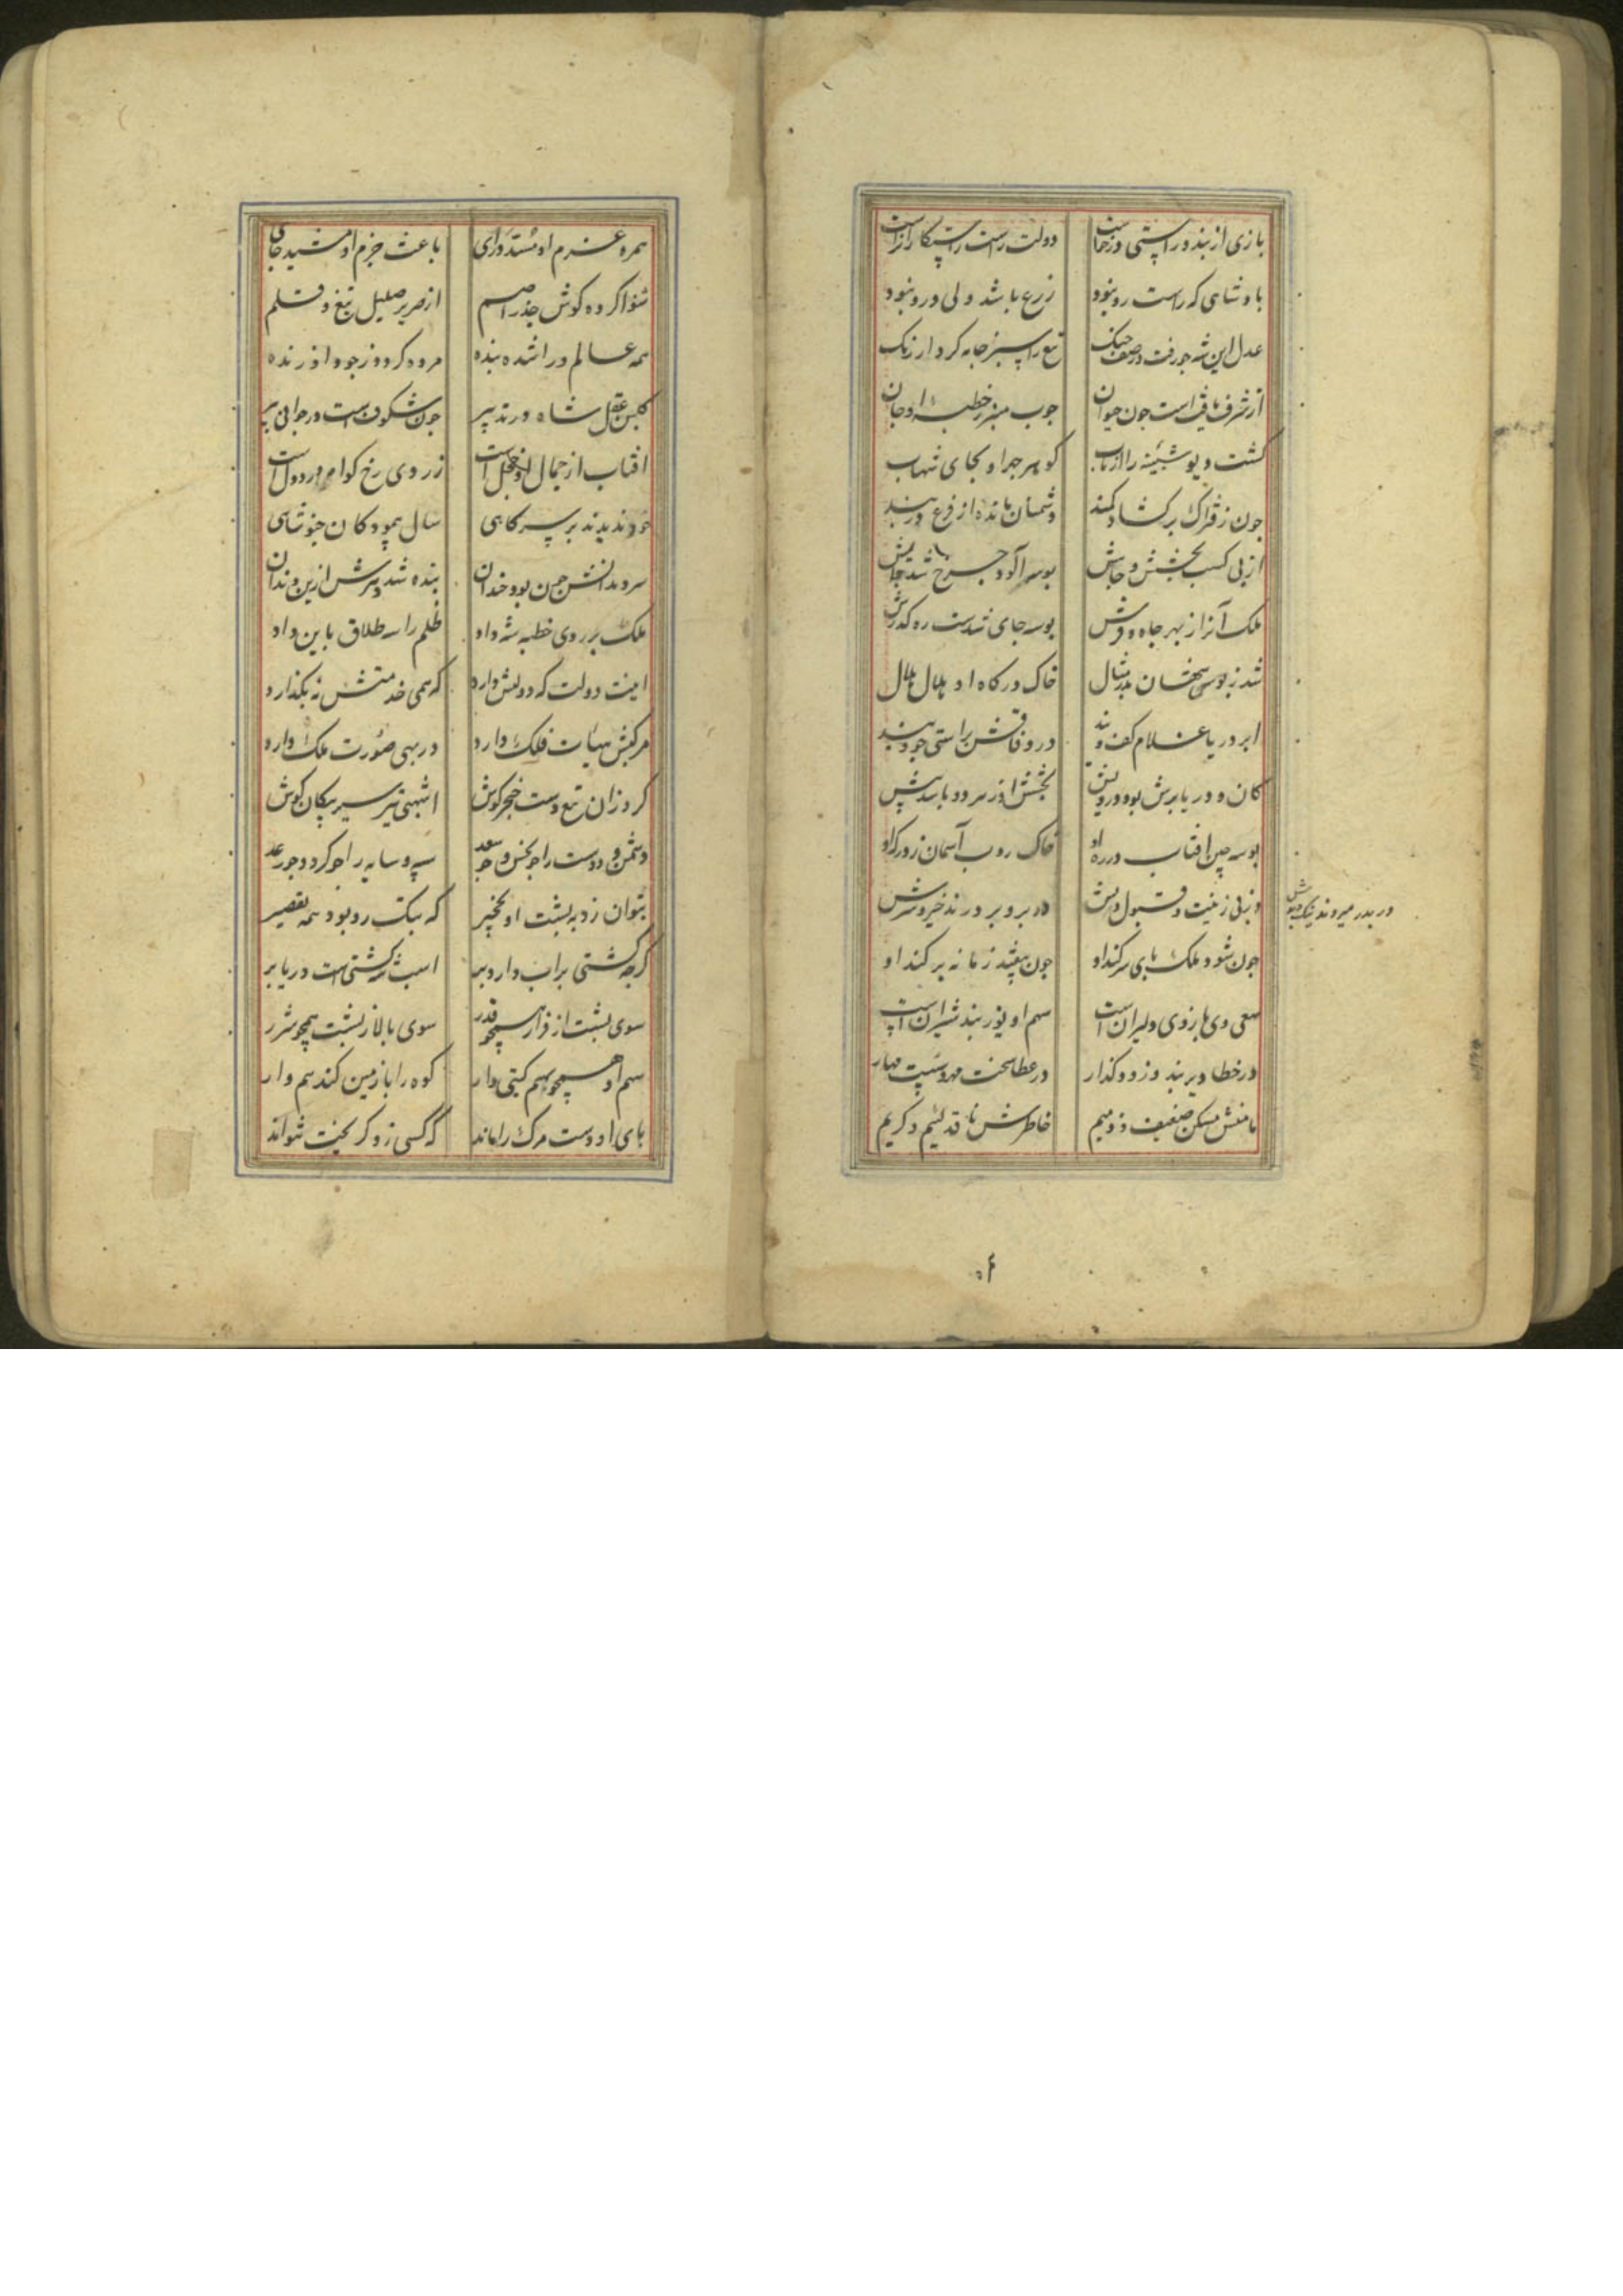 بازی از بند و راستی در خاست دولت راست راستکار انراست
بادشاهی که راست رو نبود زرع باشد ولی درو نبود
عدل این شه جو رفت در صف جنک تیغ را سبز جامه کرد از زنک
از شرف جون جوان جوب منبر ز خطبه او جان
کشت دیو را از تاب کوهر او بجای شهاب
جون ز فتراک بر کشاد کمند دشمنان مانده از فزع در بند
از پی کسب بخشش و جاهش بوسه آلود جرخ شد
ملک آنرا از بهر جاه و فرش بوسه جای شدست ره کذرش
شد ز بوس شهان خاک درکاه او هلال هلال
ابر و دریا غلام کف ویند در وفاقش براستی جو ویند
کان و دریا برش بود درویش بخشش او ز هر دو باشد پیش
بوسه جین افتاب در ره او خاک روب آسمان ز درکه او
وز پی زینت و قبول درش در بدر میروند نیک و بدش
جون شود ملک بای سر کند او جون بیفتد زمانه بر کند او
سعی وی بازوی دلیران است سهم او یوز بند شیران است
در خطا دیر بند و زود کذار در عطا سخت مهر و سست مهار
ضعیف و ذمیم خاطرش ناقد لئیم و کریم
در بدر میروند نیک و بدش
همره عزم او باعث حزم او
شنوا کرده کوش جذر اصم از صریر صلیل تیغ و قلم
همه عالم ورا شده بنده مرده کردد ز جود او زنده
کلبن عقل شاه جون شکوفه است در جوانی پیر
افتاب از جمال او خجل است ز روی رخ کواه درد دل است
خود ندیدند بر سر کاهی سال همود کان جنو شاهی
سرو جمن بود خندان بنده شد
ملک بر روی خطبه شه داد ظلم را سه طلاق باین داد
اینت دولت که دولتش دارد که همی خدمتش نه بکذارد
مرکبش هیات فلک دارد در بهی صورت ملک دارد
کرد زان تیغ دست خنجر کوش اشهبی تیر سیر پیکان کوش
دشمن و دوست را جو نحس و جو سعد سیر و سایه را جو کرد و جو رعد
بتوان زد به بشت او نخجیر که سبک رو بود همه تقصیر
کرجه کشتی بر اب دارد بر اسب شه کشتی است دریا بر
سوی بشت از فراز همجو قدر سوی بالا ز بشت همجو شرر
سم او همجو سهم کیتی دار کوه را با زمین کند هم وار
بای او دست مرک را ماند که کسی زو کریخت نتواند